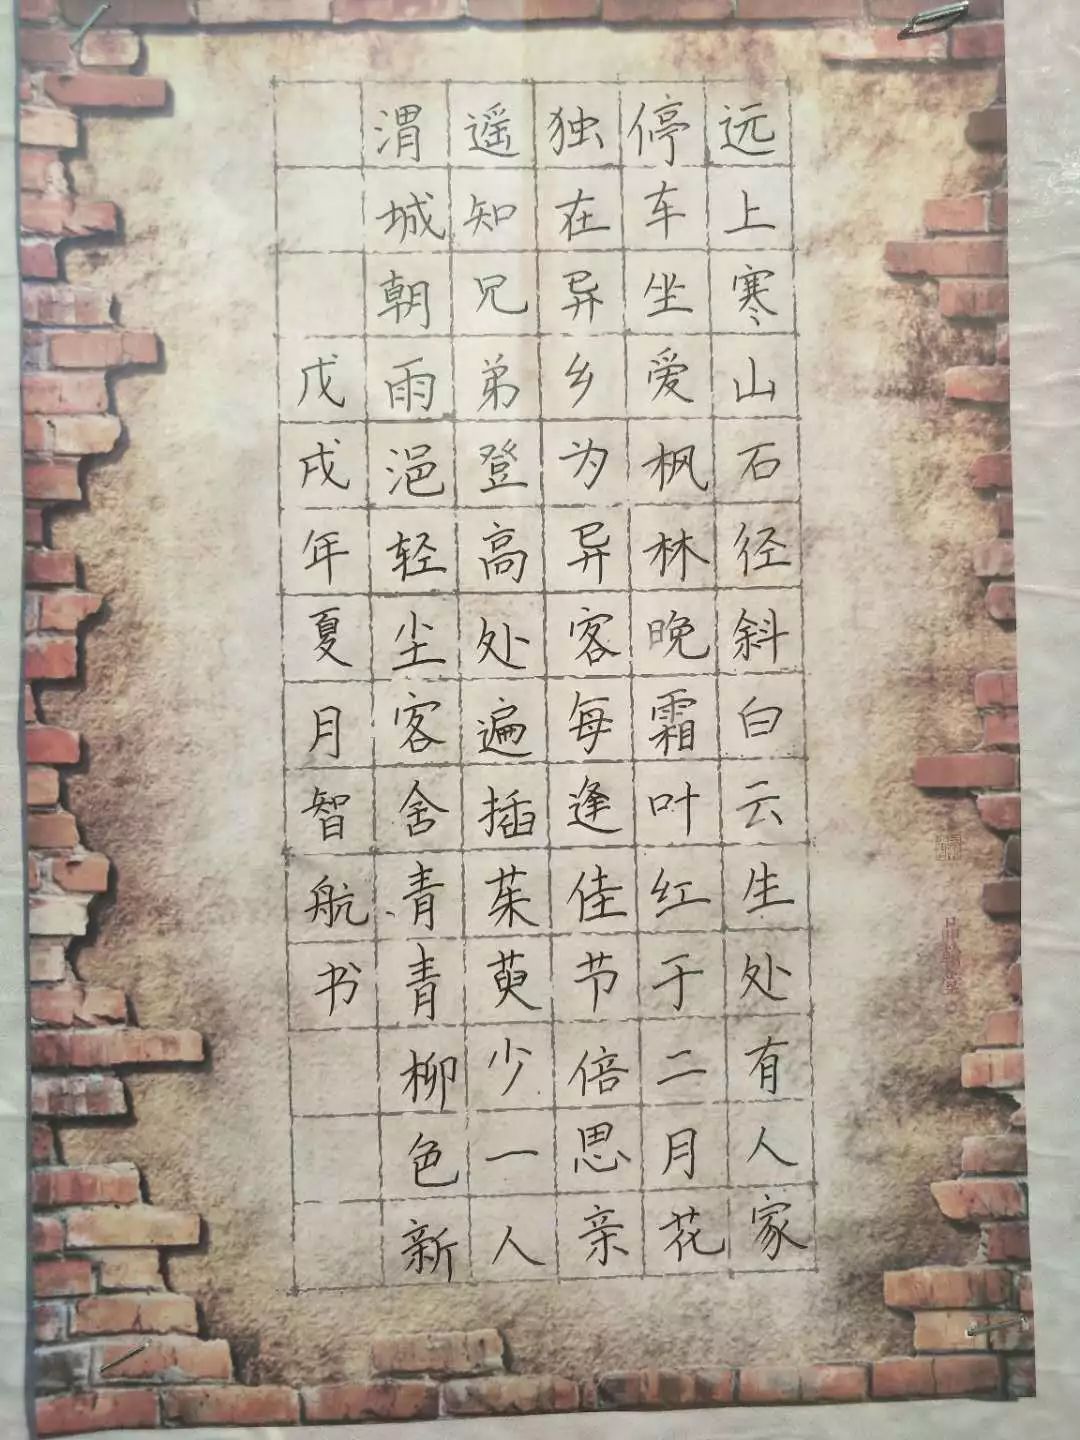 远上寒山石径斜白云生处有人家
停车坐爱枫林晚霜叶红于二月花
独在异乡为异客每逢佳节倍思亲
遥知兄弟登高处遍插茱萸少一人
渭城朝雨浥轻尘客舍青青柳色新
戊戌年夏月智航书